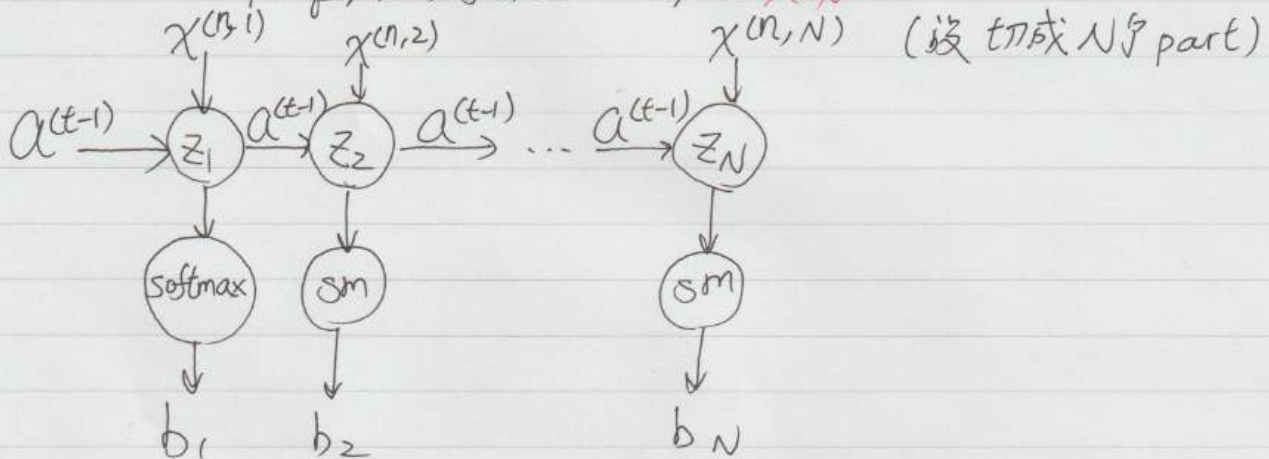 x^(n,1) x^(n,2) x^(n,N) (設切成N个part)
a^(t-1) z_1 a^(t-1) z_2 a^(t-1) ... a^(t-1) z_N
softmax sm sm
b_1 b_2 b_N